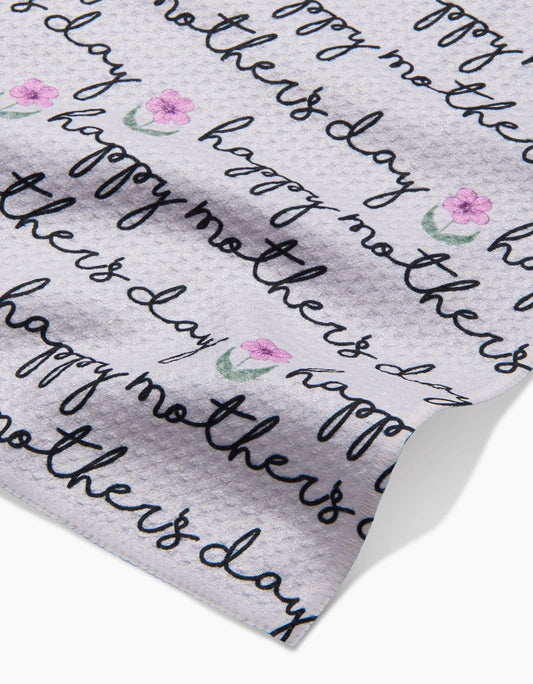 happy mother's day
happy mothers
happy mother's day
happy mothers
happy mother's day
happy mothers
happy mother's day